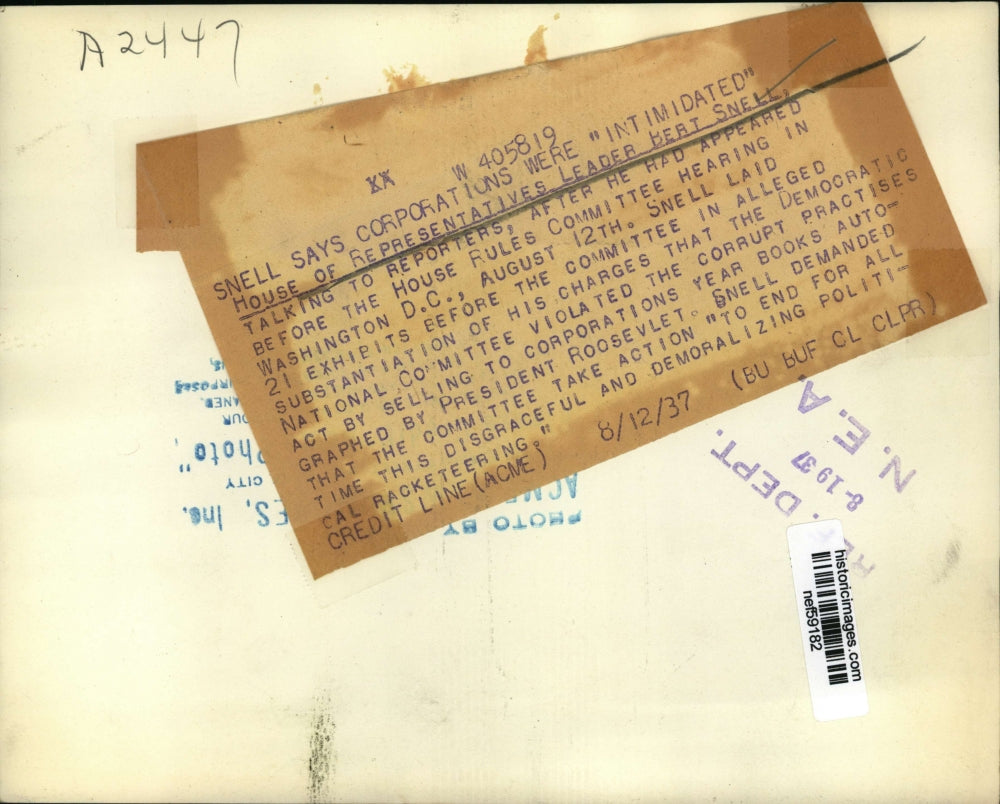 A2447
XX W 405819
SNELL SAYS CORPORATIONS WERE "INTIMIDATED"
HOUSE OF REPRESENTATIVES LEADER BERT SNELL,
TALKING TO REPORTERS, AFTER HE HAD APPEARED
BEFORE THE HOUSE RULES COMMITTEE HEARING IN
WASHINGTON D.C., AUGUST 12TH. SNELL LAID
21 EXHIBITS BEFORE THE COMMITTEE IN ALLEGED
SUBSTANTIATION OF HIS CHARGES THAT THE DEMOCRATIC
NATIONAL COMMITTEE VIOLATED THE CORRUPT PRACTISES
ACT BY SELLING TO CORPORATIONS YEAR BOOKS AUTO-
GRAPHED BY PRESIDENT ROOSEVLET. SNELL DEMANDED
THAT THE COMMITTEE TAKE ACTION "TO END FOR ALL
TIME THIS DISGRACEFUL AND DEMORALIZING POLITI-
CAL RACKETEERING."
CREDIT LINE (ACME) 8/12/37 (BU BUF CL CLPR)
PHOTO BY
ACME
ES, Inc.
CITY
Photo"
DEPT.
8-1937
N. E. A.
historicimages.com
nef59182